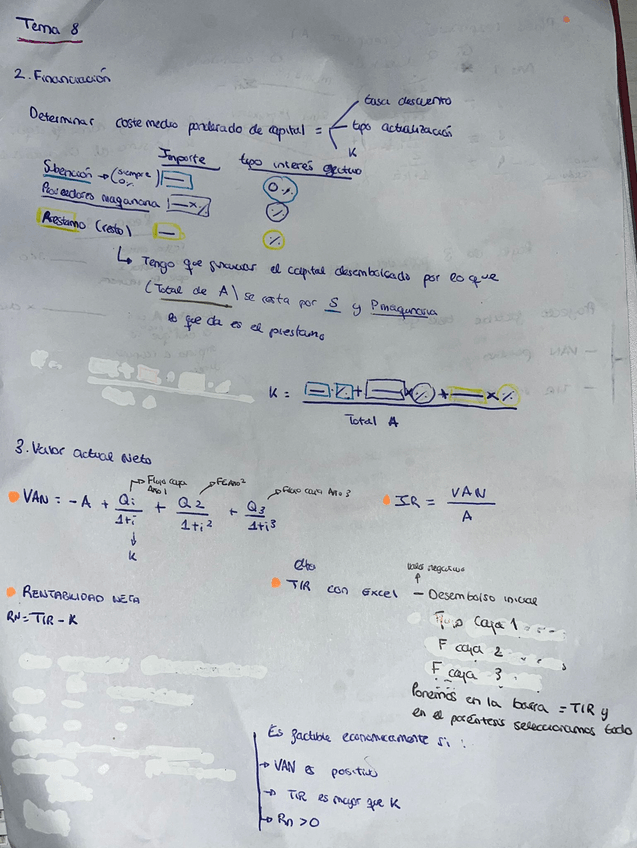 Tema 8
2. Financiación
Determinar coste medio ponderado de capital =
tasa descuento
tipo actualización
K
Importe tipo interés efectivo
Subención → (siempre 0%) 0%
Proveedores maquinaria — x % %
Préstamo (resto) — %
↳ Tengo que financiar el capital desembolsado por lo que
(Total de A) se resta por S y Pmaquinaria
lo que da es el prestamo
K = — · % + — x % + — x %
Total A
3. Valor actual Neto
Flujo caja Año 1
FC Año 2
Flujo caja Año 3
VAN = -A + Qi / 1+i + Q2 / 1+i² + Q3 / 1+i³
K
IR = VAN / A
RENTABILIDAD NETA
RN = TIR - K
TIR con Excel
valor negativo
— Desembolso inicial
Flujo Caja 1
F caja 2
F caja 3
Ponemos en la barra = TIR y
en el paréntesis seleccionamos todo
Es factible economicamente si :
→ VAN es positivo
→ TIR es mayor que K
→ Rn > 0